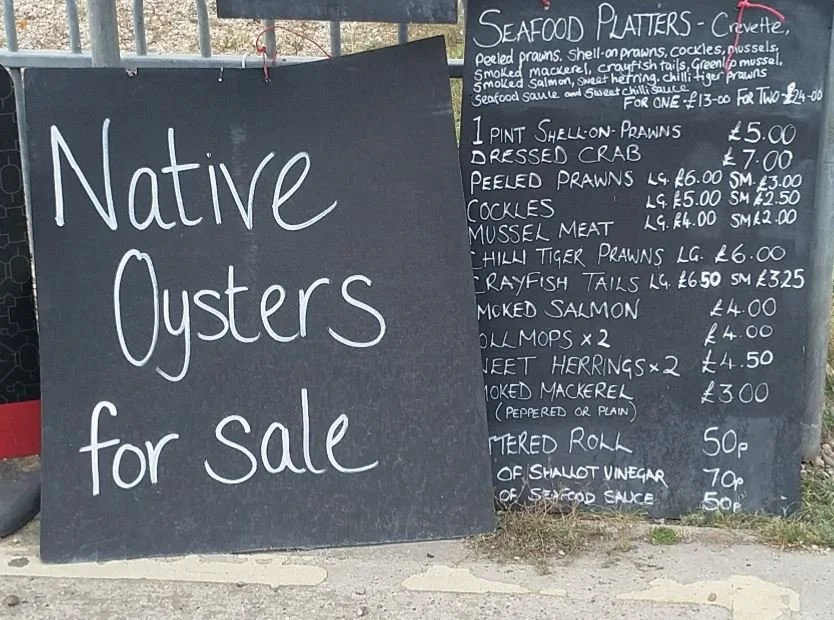 Native
Oysters
for sale
SEAFOOD PLATTERS - Crevette,
Peeled prawns, Shell-on prawns, cockles, mussels,
Smoked mackerel, crayfish tails, Greenlip mussel,
Smoked Salmon, Sweet herring, chilli tiger prawns
Seafood saule and Sweet chilli sauce
FOR ONE - £13-00 FOR TWO - £24-00
1 PINT SHELL-ON-PRAWNS £5.00
DRESSED CRAB £7.00
PEELED PRAWNS LG. £6.00 SM. £3.00
COCKLES LG. £5.00 SM £2.50
MUSSEL MEAT LG. £4.00 SM £2.00
HILLI TIGER PRAWNS LG. £6.00
RAYFISH TAILS LG. £6.50 SM £3.25
MOKED SALMON £4.00
OLLMOPS x 2 £4.00
EET HERRINGS x 2 £4.50
OKED MACKEREL £3.00
(PEPPERED OR PLAIN)
TTERED ROLL 50p
OF SHALLOT VINEGAR 70p
OF SEAFOOD SAUCE 50p